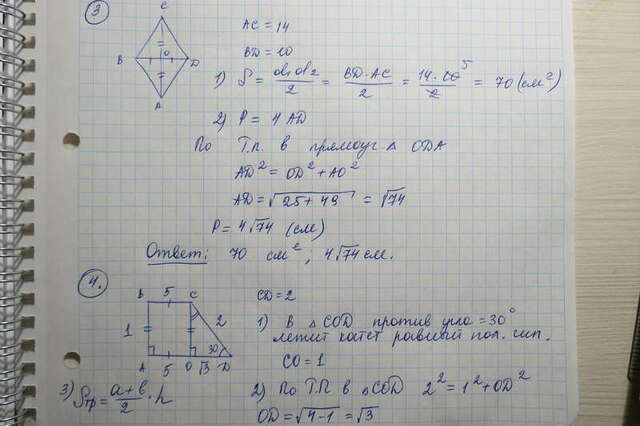 3
C
B
O
D
A
AC = 14
BD = 10
1) S = d₁d₂/2 = BD·AC/2 = 14·10/2 = 70 (см²)
5
2) P = 4AD
По Т.П в прямоуг △ ODA
AD² = OD² + AO²
AD = √25+49 = √74
P = 4√74 (см)
Ответ: 70 см²; 4√74 см.
4.
B 5 C
1 2
30
A 5 O √3 D
CD = 2
1) В △COD против угла = 30°
лежит катет равный пол. гип.
CO = 1
2) По Т.П в △COD 2² = 1² + OD²
OD = √4-1 = √3
3) Sтр = a+b/2 · h